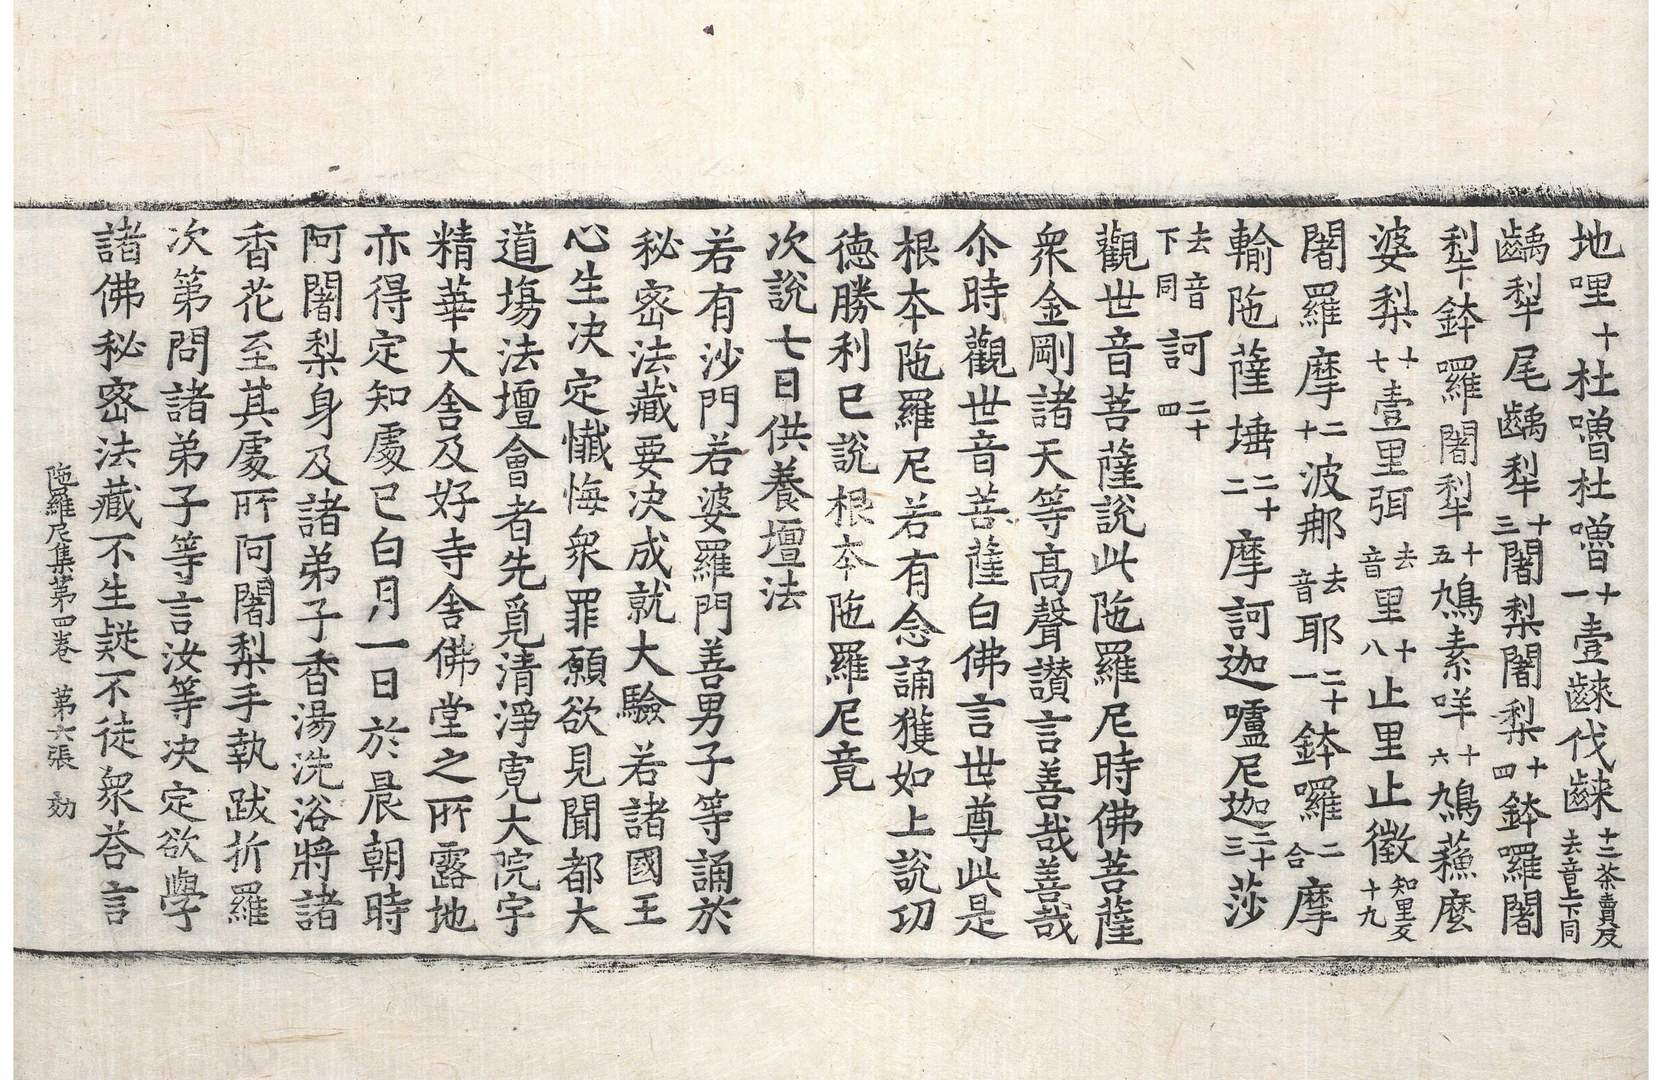 地哩十杜嚕杜嚕十一壹䶘伐䶘十二荼賣反去音上下同
齲犁尾齲犁十三闍梨闍梨十四鉢羅闍
犁下鉢囉闍犁十五鳩素咩十六鳩蘓麼
婆梨十七壹里弭去音里十八止里止徵知里反十九
闍羅摩二十波那去音耶二十一鉢囉二合摩
輸陁薩埵二十二摩訶迦嚧尼迦二十三莎
去音下同訶二十四
觀世音菩薩說此陁羅尼時佛菩薩
衆金剛諸天等高聲讃言善哉善哉
尒時觀世音菩薩白佛言世尊此是
根本陁羅尼若有念誦獲如上說功
德勝利已說根本陁羅尼竟
次說七日供養壇法
若有沙門若婆羅門善男子等誦於
秘密法藏要決成就大驗若諸國王
心生決定懺悔衆罪願欲見聞都大
道場法壇會者先覓清淨寬大院宇
精華大舍及好寺舍佛堂之所露地
亦得定知處已白月一日於晨朝時
阿闍梨身及諸弟子香湯洗浴將諸
香花至其處所阿闍梨手執跋折羅
次第問諸弟子等言汝等決定欲學
諸佛秘密法藏不生疑不徒衆荅言
陁羅尼集第四卷 第六張 効